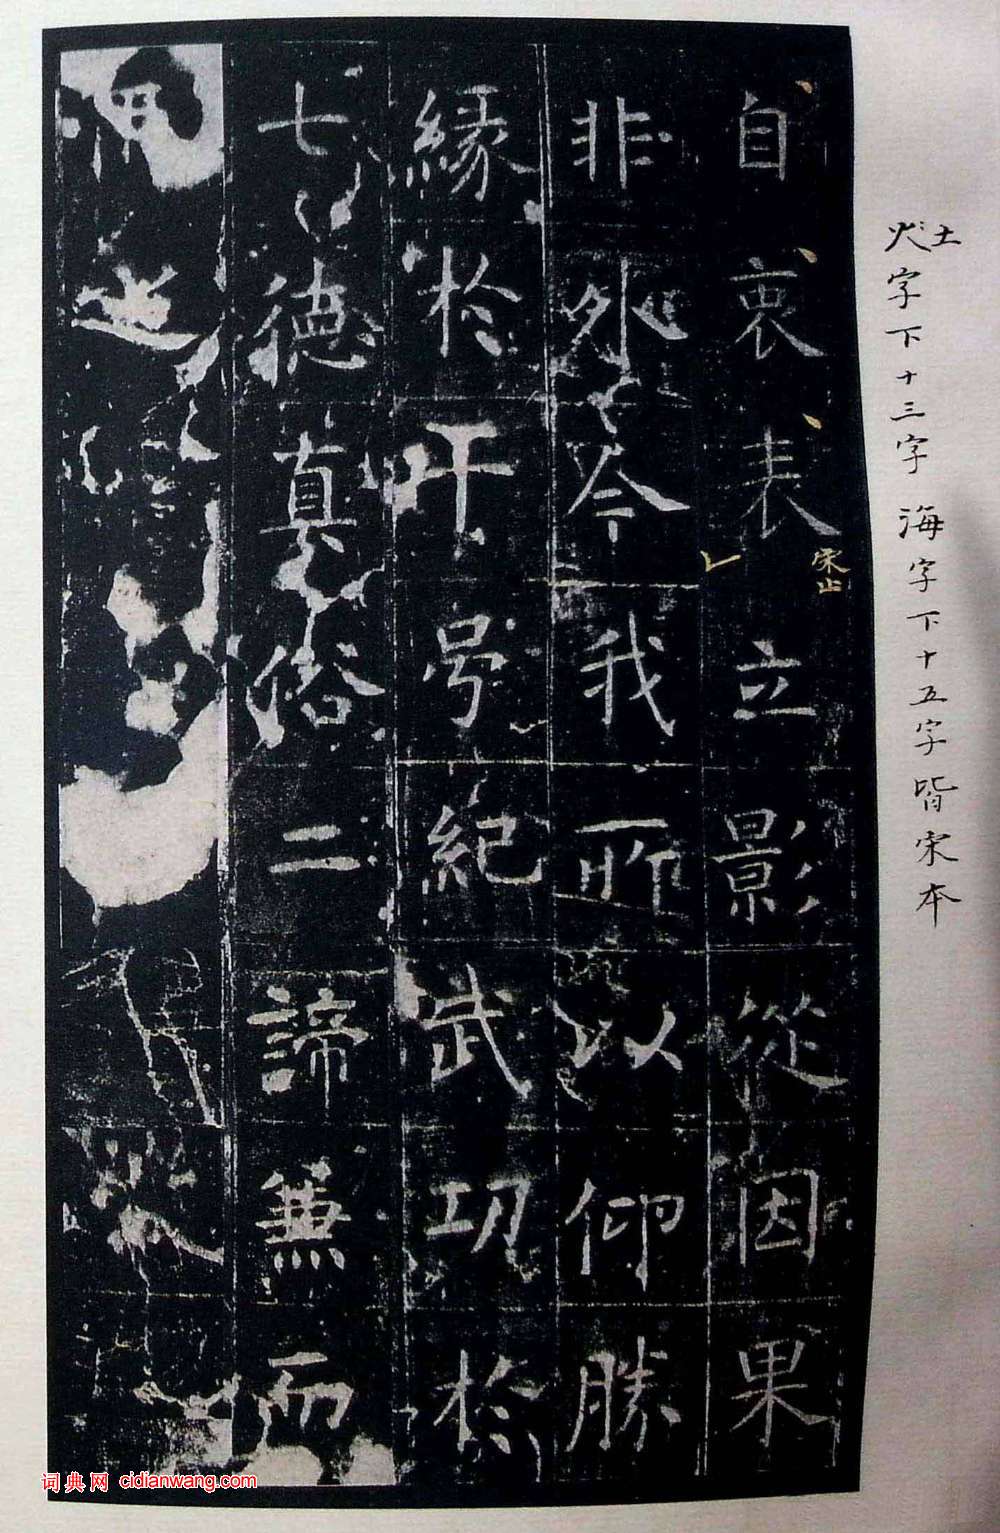 字下十三字海字下十五字皆宋本
自衷表立影從因果
宋止
非外今我所以仰勝
緣於千号紀武功於
七德真俗二諦兼而
词典网 cidianwang.com